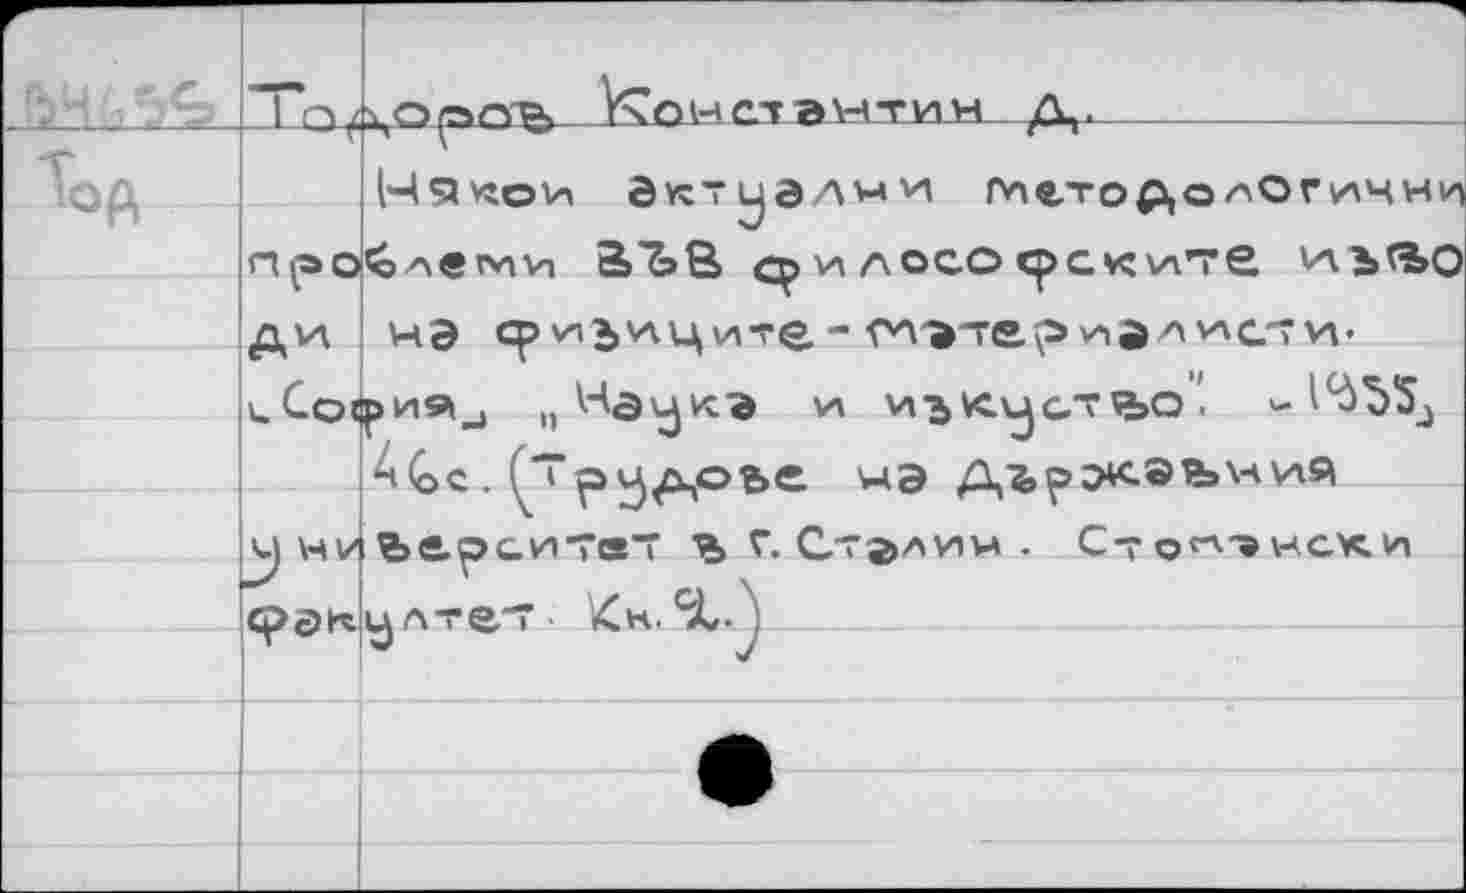 Тодоровъ Константин Д.
Тод
Някои актуални методологични
проблеми във философските изво
ди на физиците-материалисти.
[София] „Наука и изкуство". [1955]
46с. (Трудове на Държавния
университет в г. Сталин. Стопански
факултет. Кн. 2.)